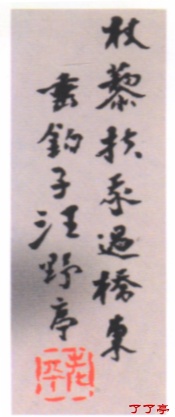 杖藜扶我過橋東
垂釣子汪野亭
了了亭